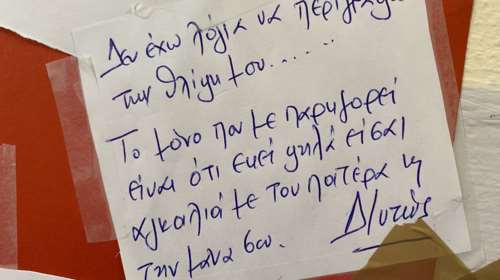 Δεν έχω λόγια να περιγράψω
την θλίψη μου......
Το μόνο που με παρηγορεί
είναι ότι εκεί ψηλά είσαι
αγκαλιά με τον πατέρα κη
την μάνα σου.